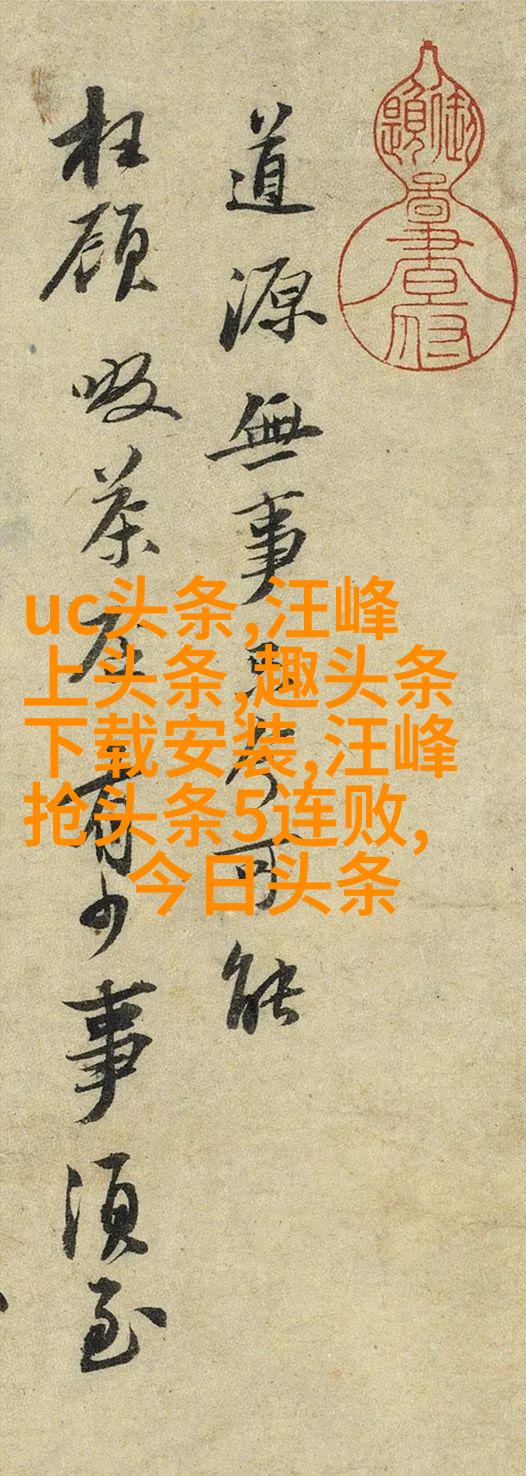 道源無事只今可能
枉顧啜茶否有少事須至
uc头条,汪峰
上头条,趣头条
下载安装,汪峰
抢头条5连败,
今日头条